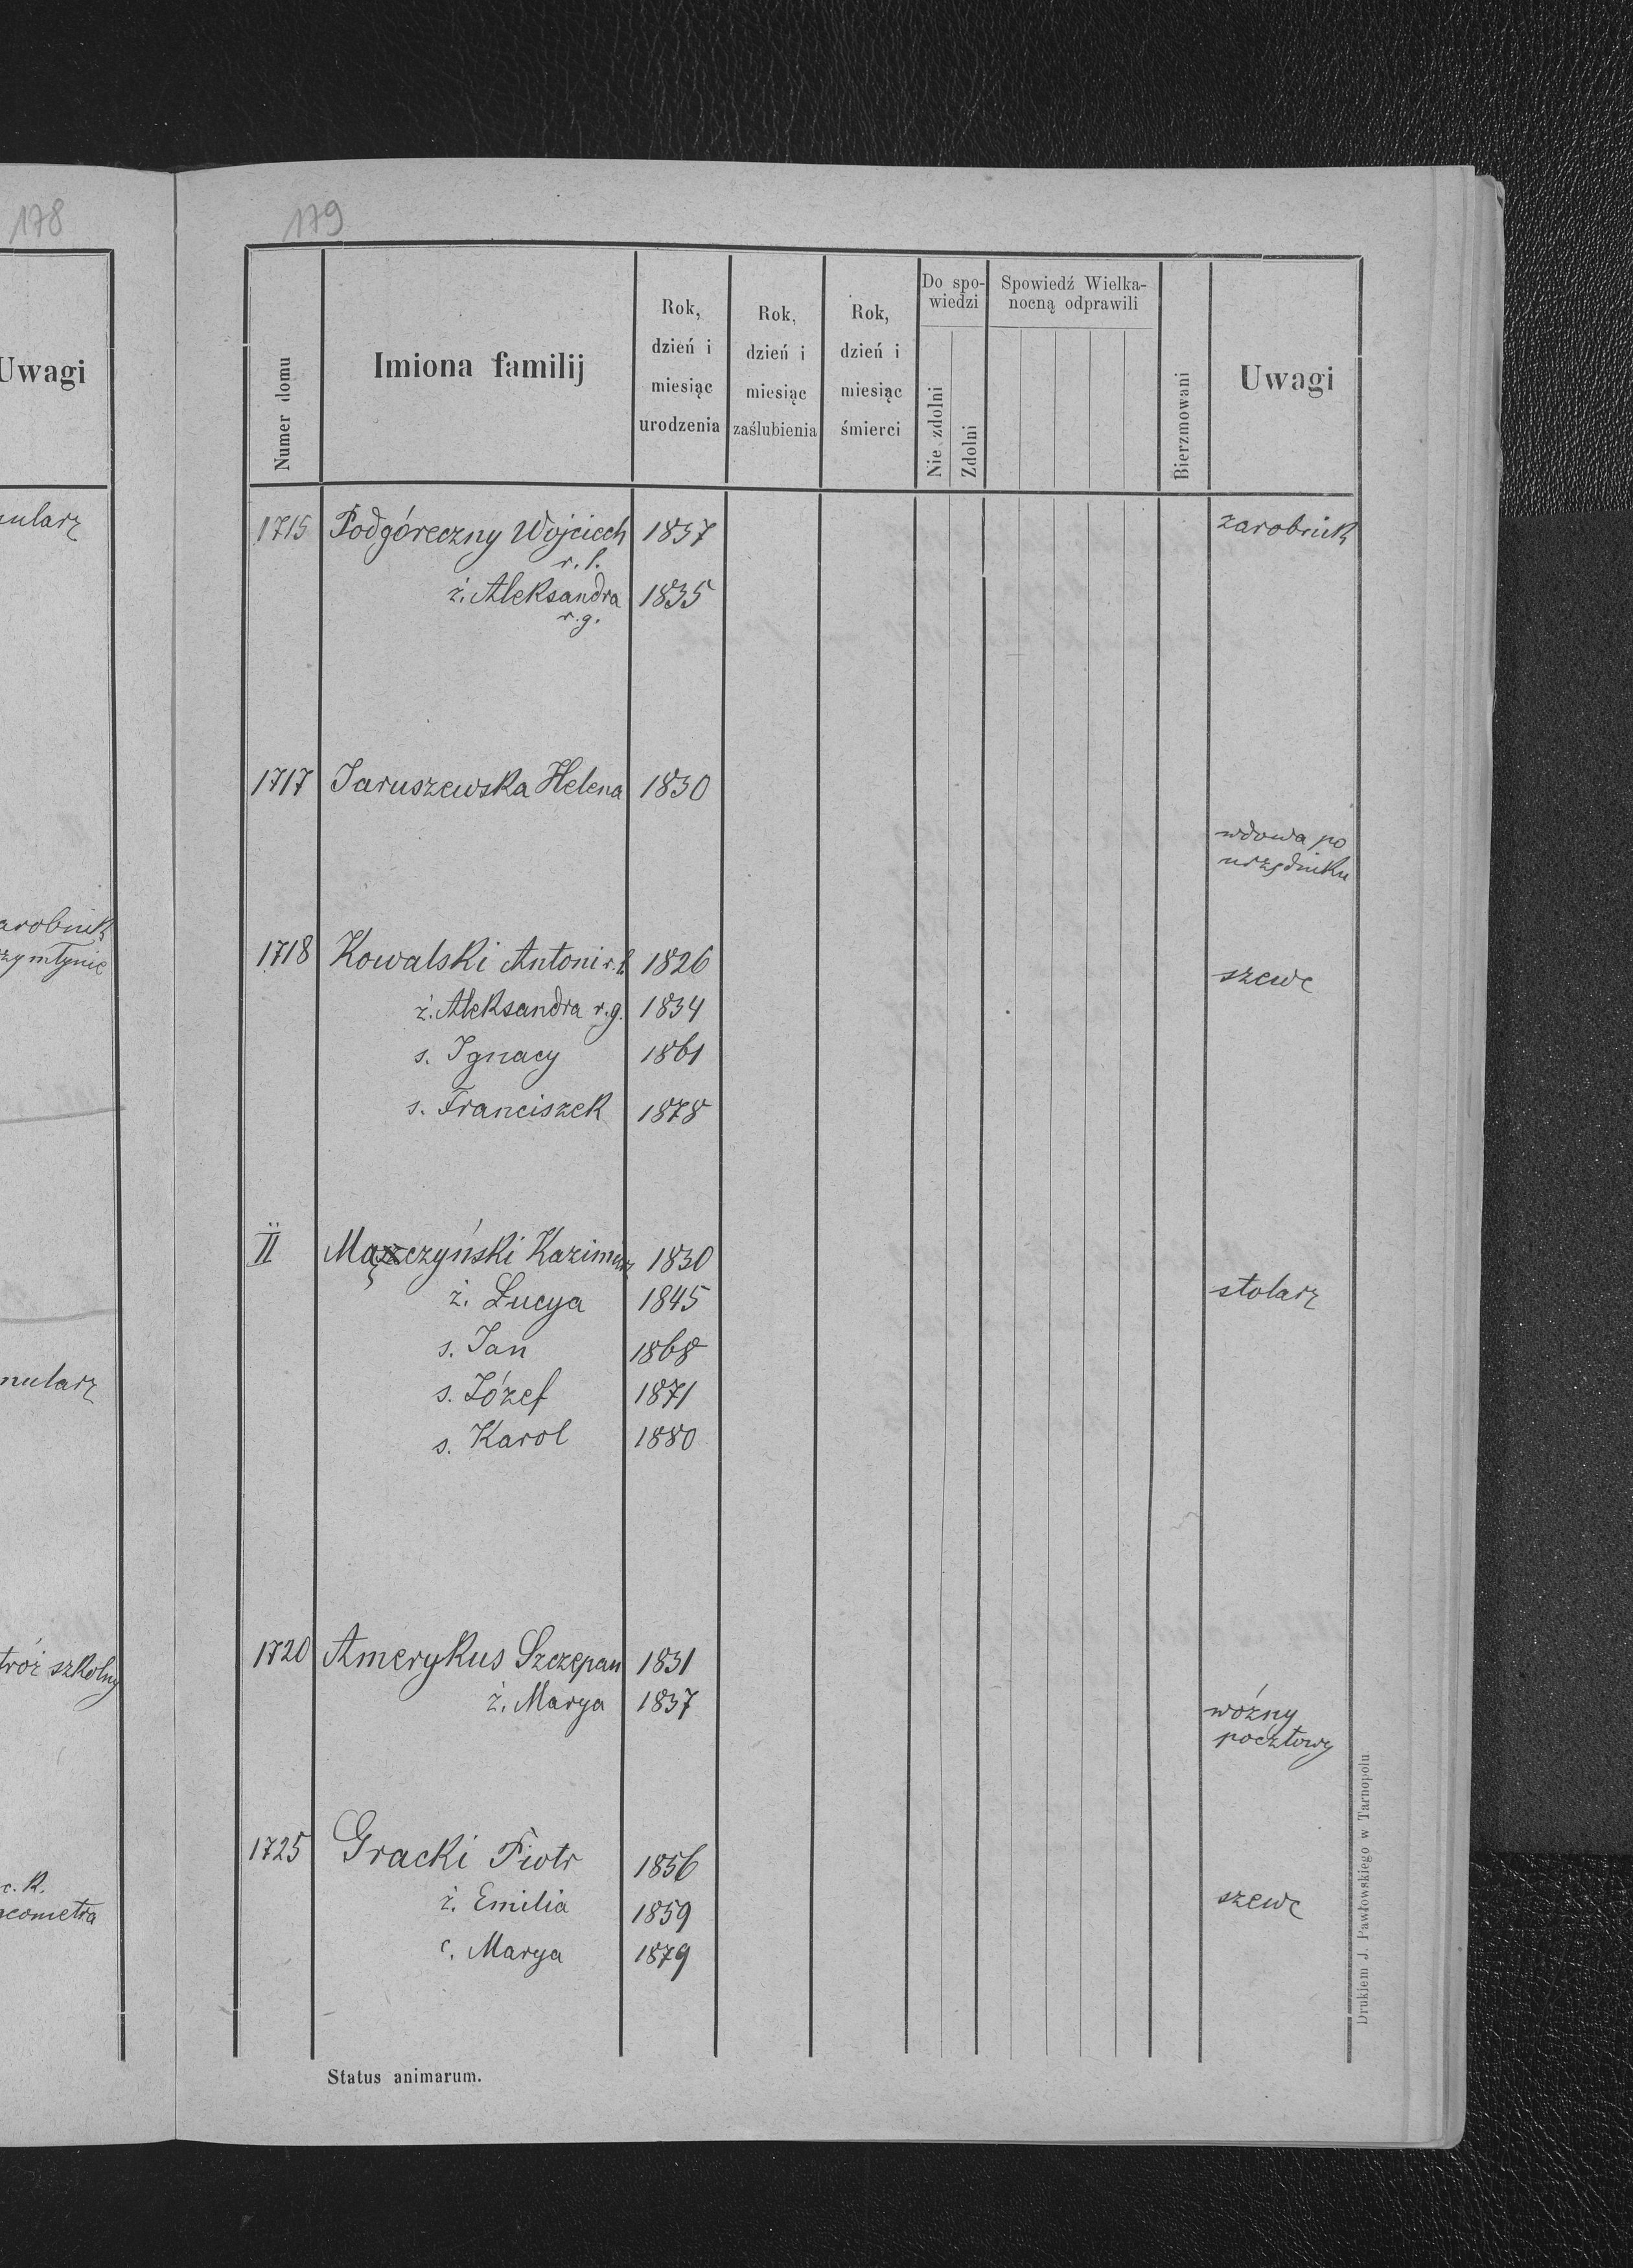 178
Uwagi
179
Numer domu
Imiona familij
Rok,
dzień i
miesiąc
urodzenia
Rok,
dzień i
miesiąc
zaślubienia
Rok,
dzień i
miesiąc
śmierci
Do spo-
wiedzi
Nie zdolni
Zdolni
Spowiedź Wielka-
nocną odprawili
Bierzmowani
Uwagi
1715 Podgóreczny Wojciech 1837 zarobnik
r. l.
ż. Aleksandra 1835
r. g.
1717 Jaruszewska Helena 1830
wdowa po
urzędniku
1718 Kowalski Antoni r. ł. 1826 szewc
ż. Aleksandra r. g. 1834
s. Ignacy 1861
s. Franciszek 1878
II Mączyński Kazimierz 1830
ż. Łucya 1845 stolarz
s. Jan 1868
s. Józef 1871
s. Karol 1880
1720 Amerykus Szczepan 1831
ż. Marya 1837 woźny
pocztowy
1725 Gracki Piotr 1856
ż. Emilia 1859 szewc
c. Marya 1879
arobnik
zy młynie
szkolny
c. k.
eometra
Status animarum.
Drukiem J. Pawłowskiego w Tarnopolu